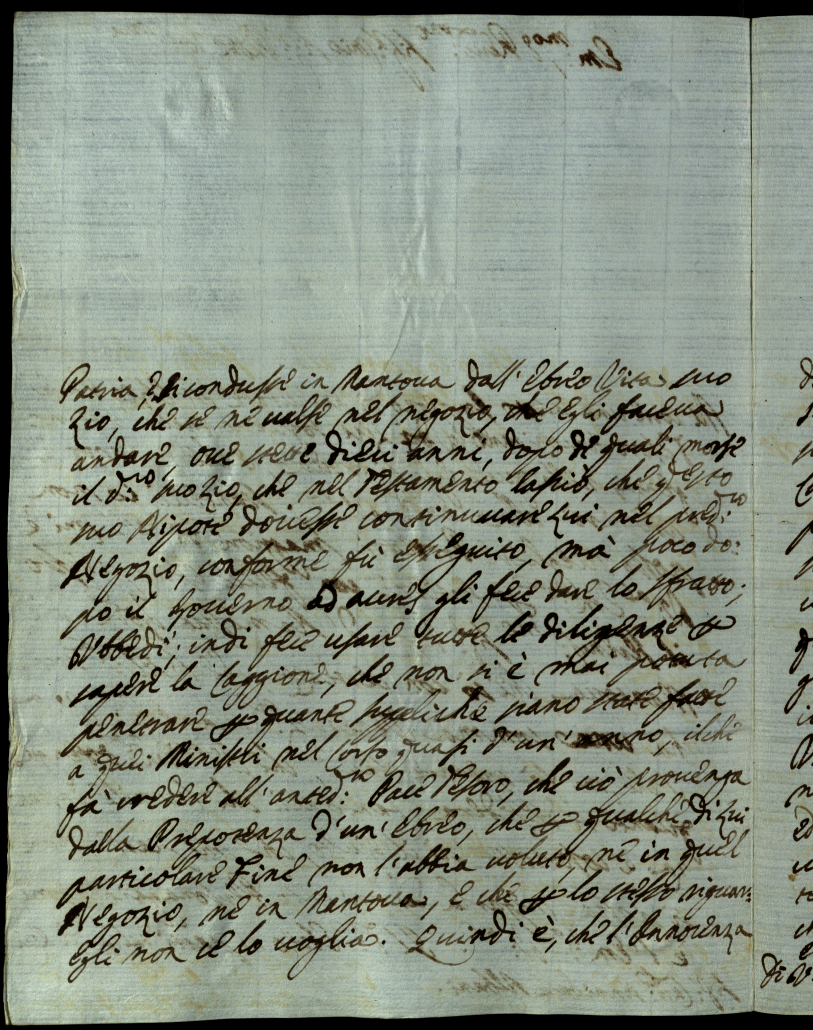 Patria, si condusse in Mantova dall'Ebreo Vita suo
Zio, che se ne valse nel negozio, che Egli faceva
andare, ove stette dieci anni, dopo de quali morse
il d.to suo Zio, che nel Testamento lasciò, che questo
suo Nipote dovesse continuuare qui nel pred.to
Negozio, conforme fù esseguito, mà poco do:
po il Governo gli fece dare lo sfratto;
Ubbedì; indi fece usare tutte le diligenze p
sapere la Caggione, che non si è mai potuta
penetrare p quante suppliche siano state fatte
a quei Ministri nel Corso quasi d'un'anno, ilche
fà credere all'anted.to Pace Pesaro, che ciò provenga
dalla Prepotenza d'un'Ebreo, che p qualche di lui
particolare Fine non l'abbia voluto, ne in quel
Negozio, ne in Mantova, e che p lo stesso riguar:
Egli non ce lo voglia. Quindi è, che l'Innocenza